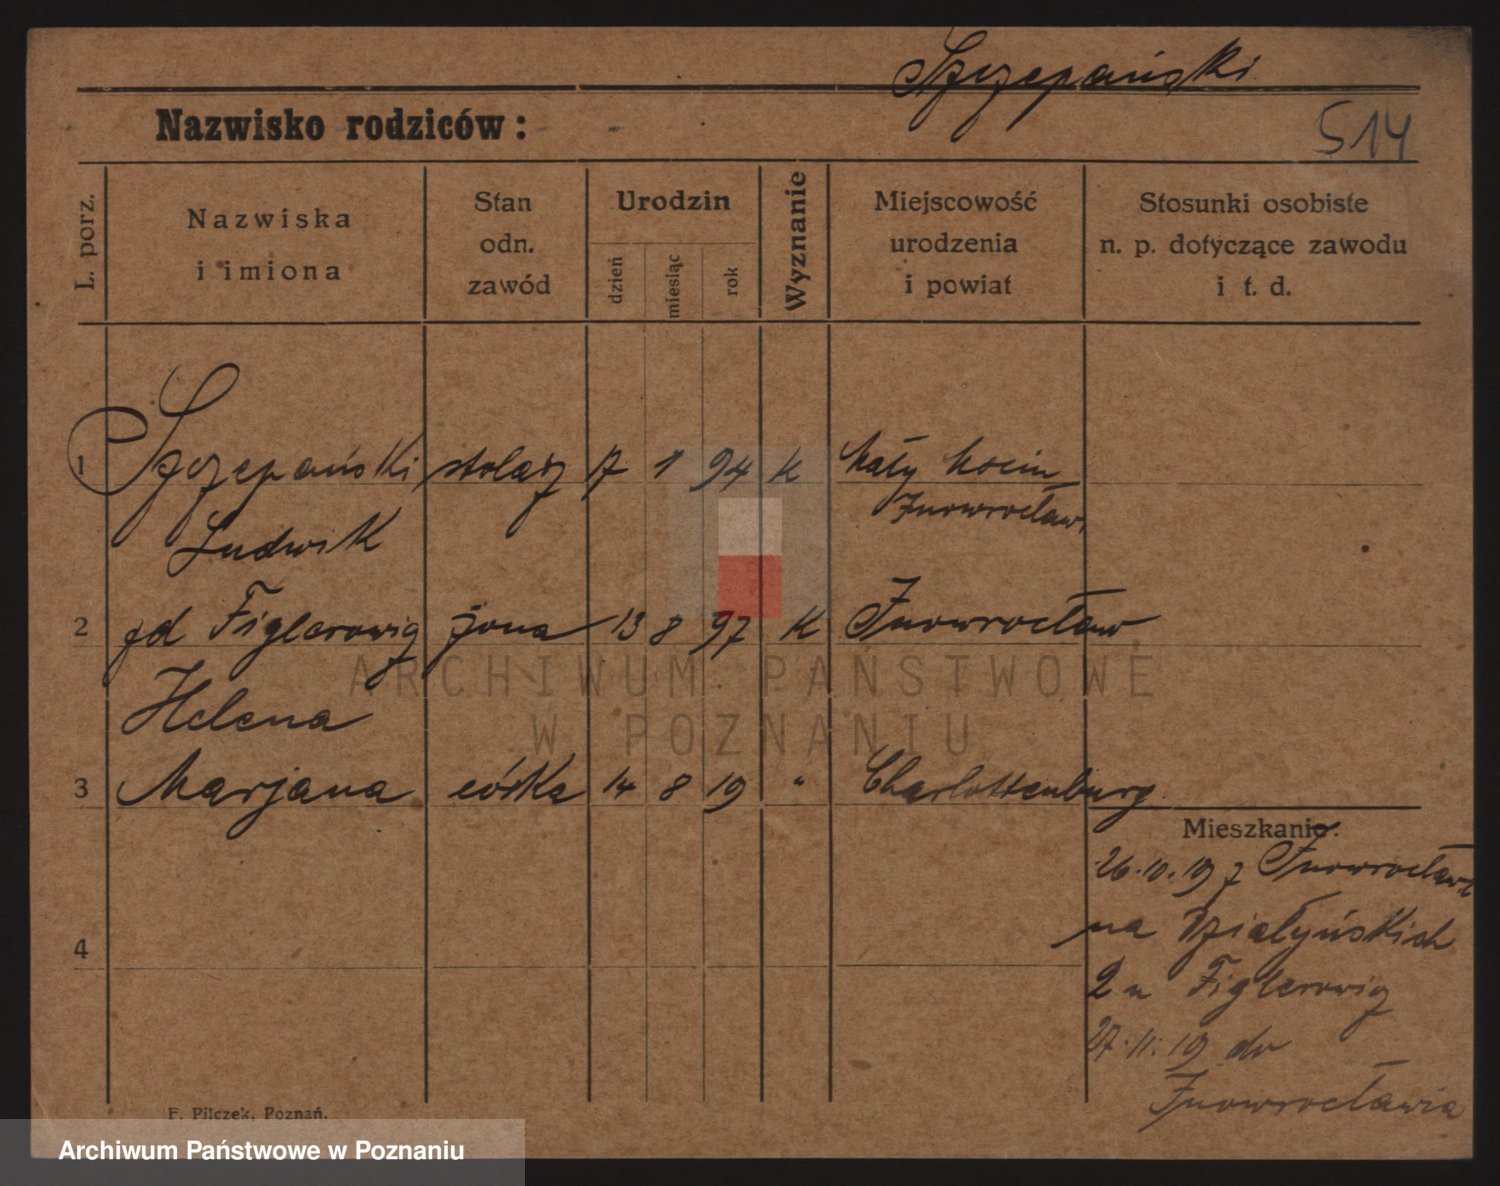 Szczepański
Nazwisko rodziców:
514
L. porz.
Nazwiska
i imiona
Stan
odn.
zawód
Urodzin
dzień
miesiąc
rok
Wyznanie
Miejscowość
urodzenia
i powiat
Stosunki osobiste
n. p. dotyczące zawodu
i t. d.
1 Szczepański stolarz 17 1 94 K Mały
Ludwik Inowrocław
2 Figlerowicz żona 13 8 97 K Inowrocław
Helena
3 Marjana córka 14 8 19 " Charlottenburg
4
Mieszkanie:
26.10.19 z Inowrocławia
na Działyńskich
2 u Figlerowicz
27.11.19 do
Inowrocławia
F. Pilczek, Poznań.
ARCHIWUM PAŃSTWOWE
W POZNANIU
Archiwum Państwowe w Poznaniu